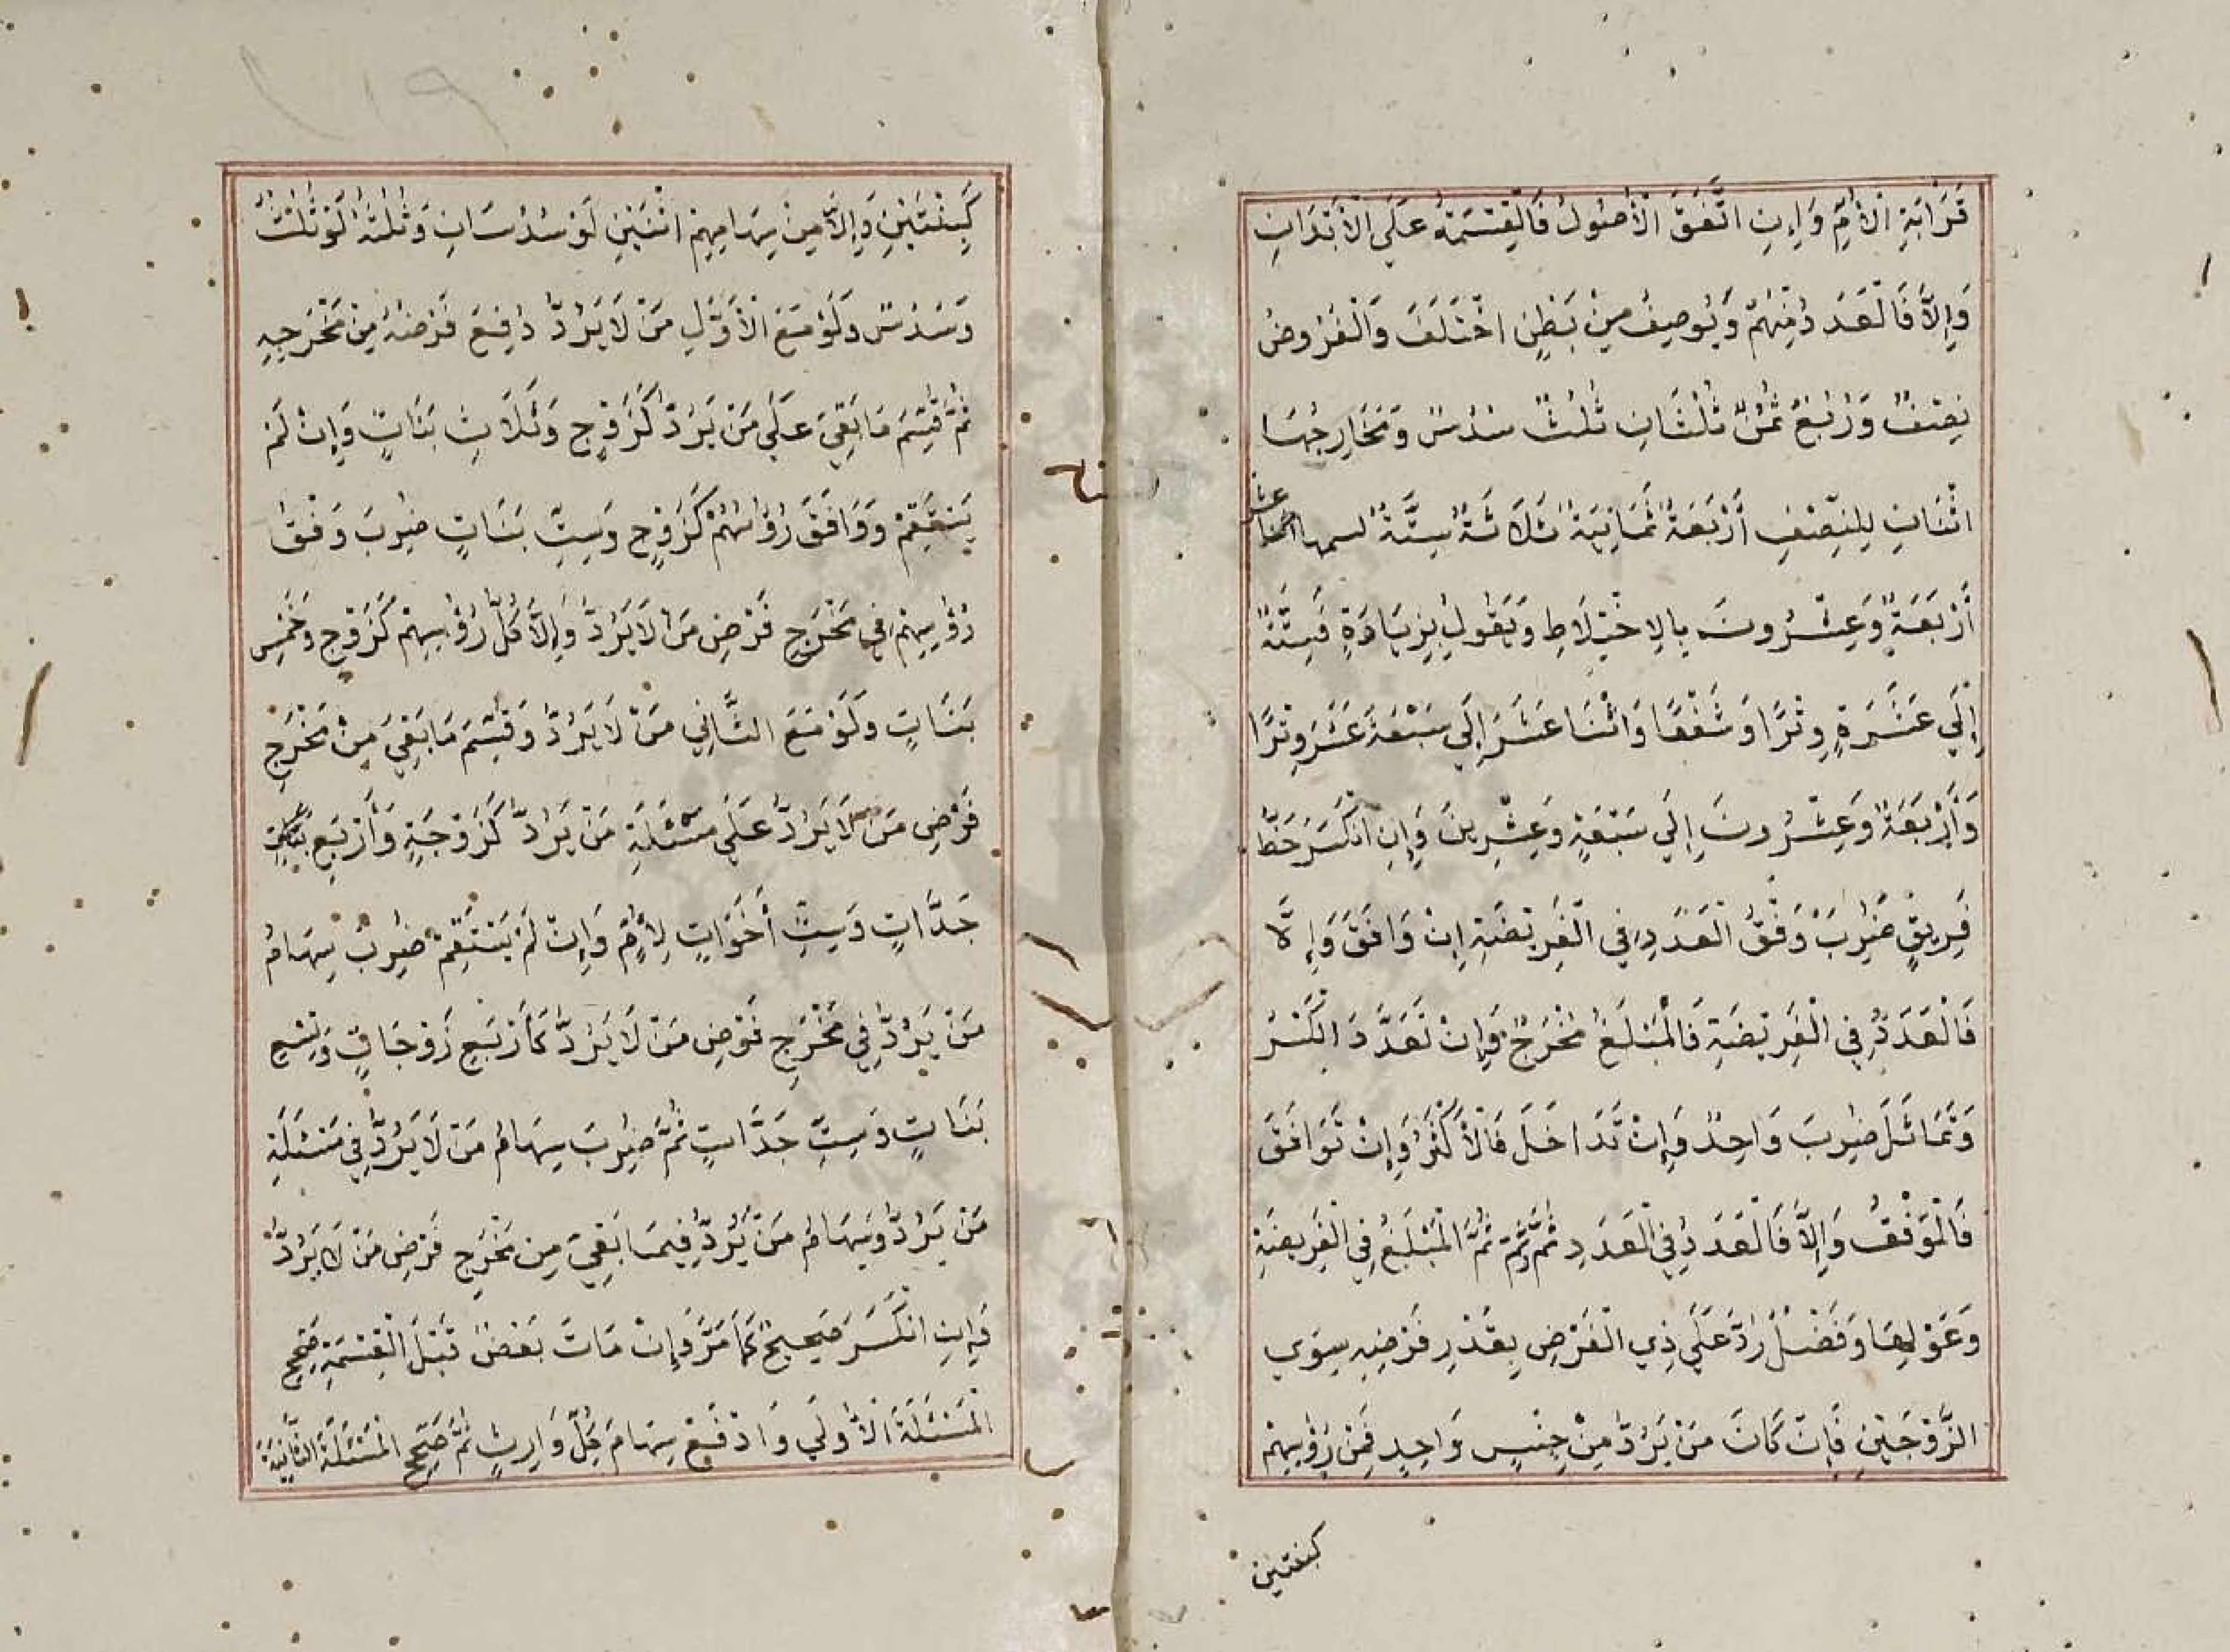 قَرَابَةِ الْأُمِّ وَإِنِ اتَّفَقَ الْأُصُولُ فَالْقِسْمَةُ عَلَى الْأَبْدَانِ
وَإِلَّا فَالْعَدَدُ مِنْهُمْ وَالْوَصْفُ مِنْ بَطْنٍ اخْتَلَفَ وَالْفُرُوضُ
نِصْفٌ وَرُبْعٌ ثُمُنٌ ثُلُثَانِ ثُلُثٌ سُدُسٌ وَمَخَارِجُهَا
اثْنَانِ لِلنِّصْفِ أَرْبَعَةٌ ثَمَانِيَةٌ ثَلَاثَةٌ سِتَّةٌ لسمها اثنا عشر
أَرْبَعَةٌ وَعِشْرُونَ بِالِاخْتِلَاطِ وَيَعُولُ بِزِيَادَةٍ فَسِتَّةٌ
إِلَى عَشَرَةٍ وِتْرًا وَشَفْعًا وَاثْنَا عَشَرَ إِلَى سَبْعَةَ عَشَرَ وِتْرًا
وَأَرْبَعَةٌ وَعِشْرُونَ إِلَى سَبْعَةٍ وَعِشْرِينَ وَإِنِ انْكَسَرَ حَظُّ
فَرِيقٍ ضُرِبَ وَفْقُ الْعَدَدِ فِي الْفَرِيضَةِ إِنْ وَافَقَ وَإِلَّا
فَالْعَدَدُ فِي الْفَرِيضَةِ فَالْمَبْلَغُ مَخْرَجٌ وَإِنْ تَعَدَّدَ الْكَسْرُ
وَتَمَاثَلَ ضُرِبَ وَاحِدٌ وَإِنْ تَدَاخَلَ فَالْأَكْثَرُ وَإِنْ تَوَافَقَ
فَالْوَفْقُ وَإِلَّا فَالْعَدَدُ فِي الْعَدَدِ ثُمَّ وَثُمَّ ثُمَّ الْمَبْلَغُ فِي الْفَرِيضَةِ
وَعَوْلِهَا وَفَضْلٌ رُدَّ عَلَى ذِي الْفَرْضِ بِقَدْرِ فَرْضِهِ سِوَى
الزَّوْجَيْنِ فَإِنْ كَانَ مَنْ يُرَدُّ مِنْ جِنْسٍ وَاحِدٍ فَمِنْ رُؤُسِهِمْ
كبنتين
١١٩
كَبِنْتَيْنِ وَإِلَّا مِنْ سِهَامِهِمْ اثْنَيْنِ لَوْ سُدُسَانِ وَثَلَاثَةٌ لَوْ ثُلُثٌ
وَسُدُسٌ وَلَوْ مَعَ الْأَوَّلِ مَنْ لَا يُرَدُّ دُفِعَ فَرْضُهُ مِنْ مَخْرَجِهِ
ثُمَّ قُسِمَ مَا بَقِيَ عَلَى مَنْ يُرَدُّ كَزَوْجٍ وَثَلَاثِ بَنَاتٍ وَإِنْ لَمْ
يَسْتَقِمْ وَوَافَقَ رُؤُسُهُمْ كَزَوْجٍ وَسِتِّ بَنَاتٍ ضُرِبَ وَفْقُ
رُؤُسِهِمْ فِي مَخْرَجِ فَرْضِ مَنْ لَا يُرَدُّ وَإِلَّا كُلُّ رُؤُسِهِمْ كَزَوْجٍ وَخَمْسِ
بَنَاتٍ وَلَوْ مَعَ الثَّانِي مَنْ لَا يُرَدُّ وَقُسِمَ مَا بَقِيَ مِنْ مَخْرَجِ
فَرْضِ مَنْ لَا يُرَدُّ عَلَى مَسْئَلَةِ مَنْ يُرَدُّ كَزَوْجَةٍ وَأَرْبَعِ
جَدَّاتٍ وَسِتِّ أَخَوَاتٍ لِأُمٍّ وَإِنْ لَمْ يَسْتَقِمْ ضُرِبَ سِهَامُ
مَنْ يُرَدُّ فِي مَخْرَجِ فَرْضِ مَنْ لَا يُرَدُّ كَأَرْبَعِ زَوْجَاتٍ وَتِسْعِ
بَنَاتٍ وَسِتِّ جَدَّاتٍ ثُمَّ ضُرِبَ سِهَامُ مَنْ لَا يُرَدُّ فِي مَسْئَلَةِ
مَنْ يُرَدُّ وَسِهَامُ مَنْ يُرَدُّ فِيمَا بَقِيَ مِنْ مَخْرَجِ فَرْضِ مَنْ لَا يُرَدُّ
فَإِنِ انْكَسَرَ صَحِيحٌ كَمَا مَرَّ وَإِنْ مَاتَ بَعْضٌ قَبْلَ الْقِسْمَةِ صَحِّحِ
الْمَسْئَلَةَ الْأُولَى وَادْفَعْ سِهَامَ كُلِّ وَارِثٍ ثُمَّ صَحِّحِ الْمَسْئَلَةَ الثَّانِيَةَ